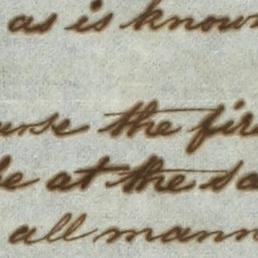 as is known
the fir
at the sa
all mann